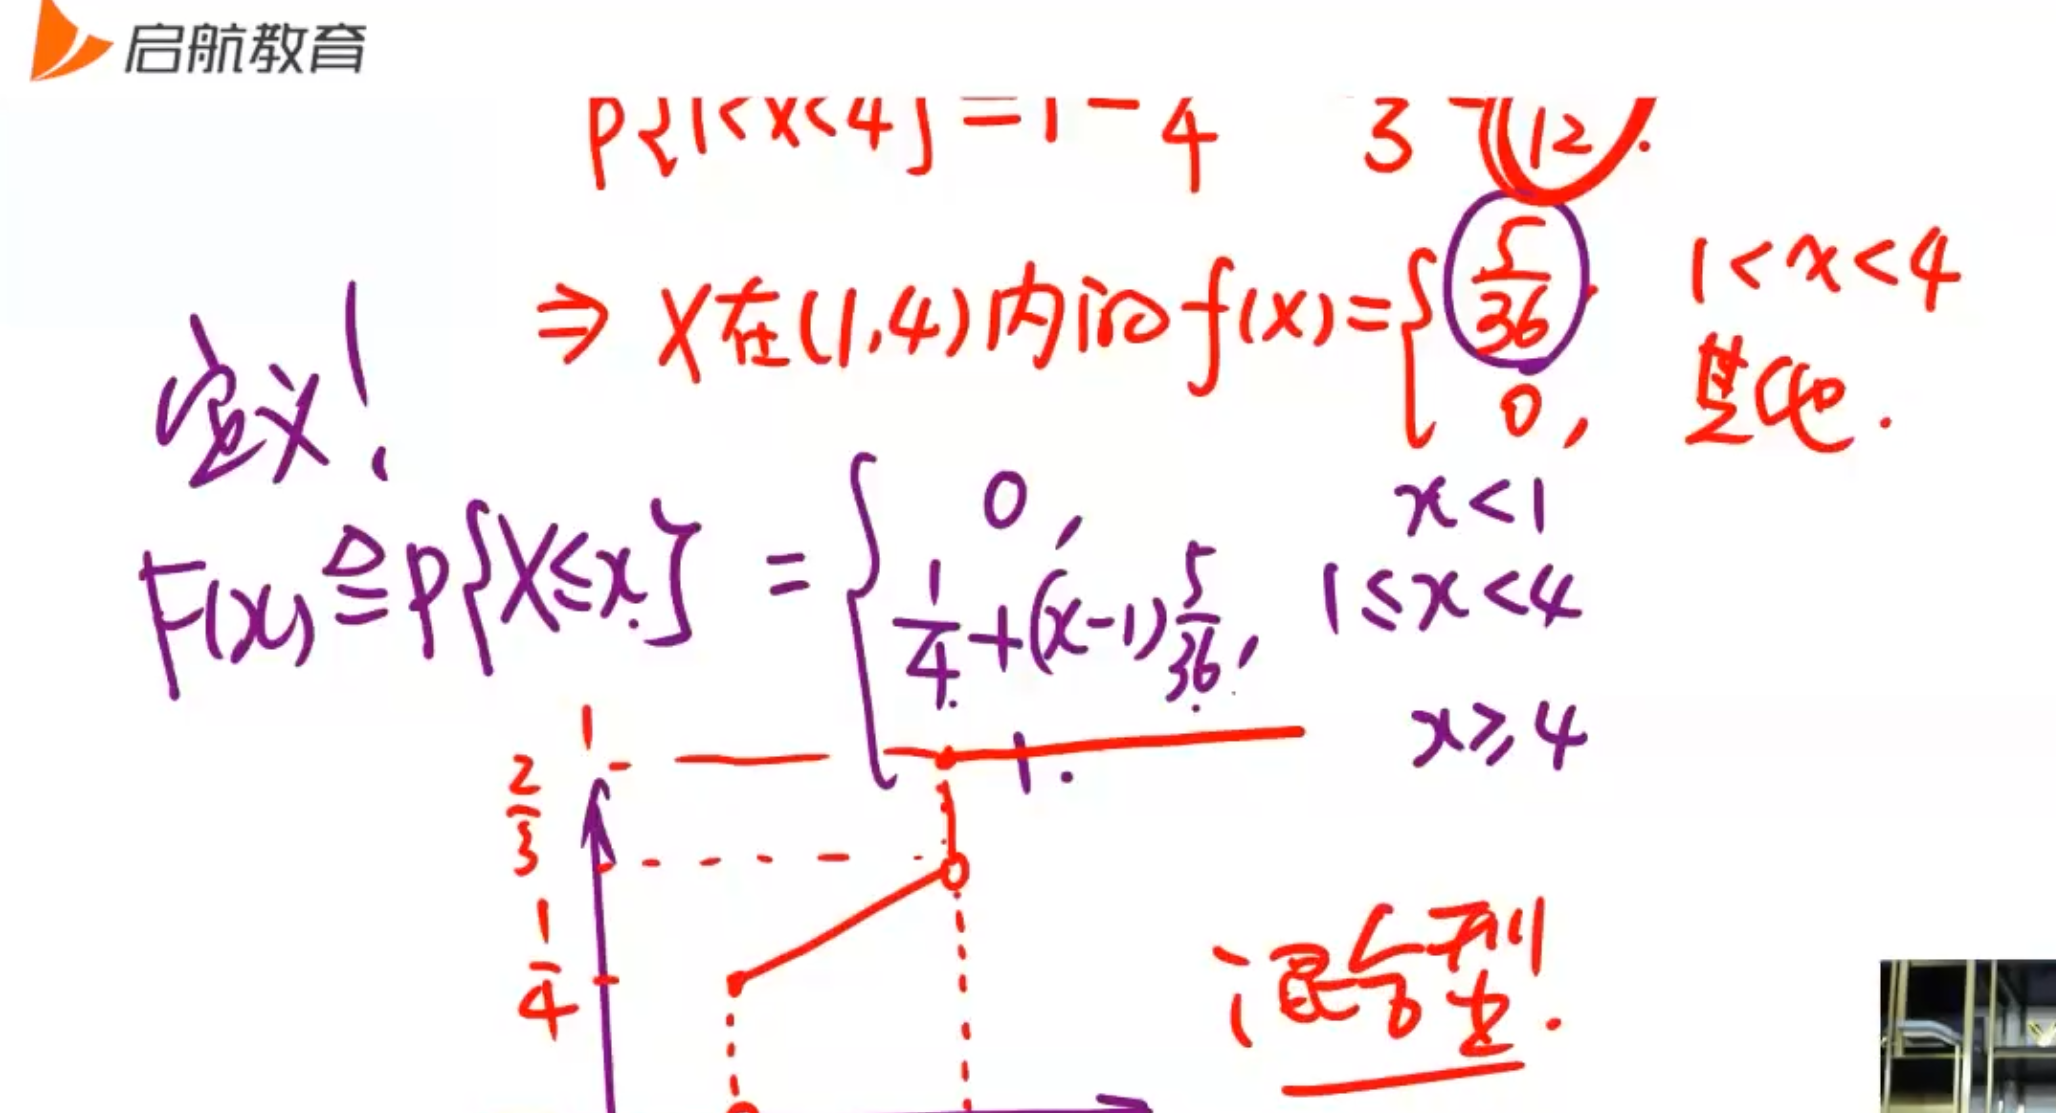 启航教育
P{1<X<4}=1-4 3 12.
⇒ X在(1,4)内的f(x)={5/36, 1<x<4
0, 其他.
定义!
F(x)≙P{X≤x}={0, x<1
1/4+(x-1)5/36, 1≤x<4
1. x≥4
1
2/3
1/4
混合型.